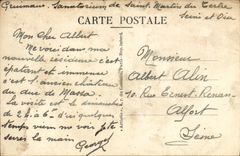 Sanatorium de Saint Martin du Tertre
Seine et Oise
CARTE POSTALE
Mon Cher Albert
Me voici dans ma
nouvelle résidence c'est
épatant et immense
c'est l'ancien château
du duc de Massa.
La visite est le dimanche
de 2 h à 6 h d'ici quelque
temps viens me voir je te
serre la main
Monsieur
Albert Alin
10, Rue Ernest-Renan-
Alfort
Seine